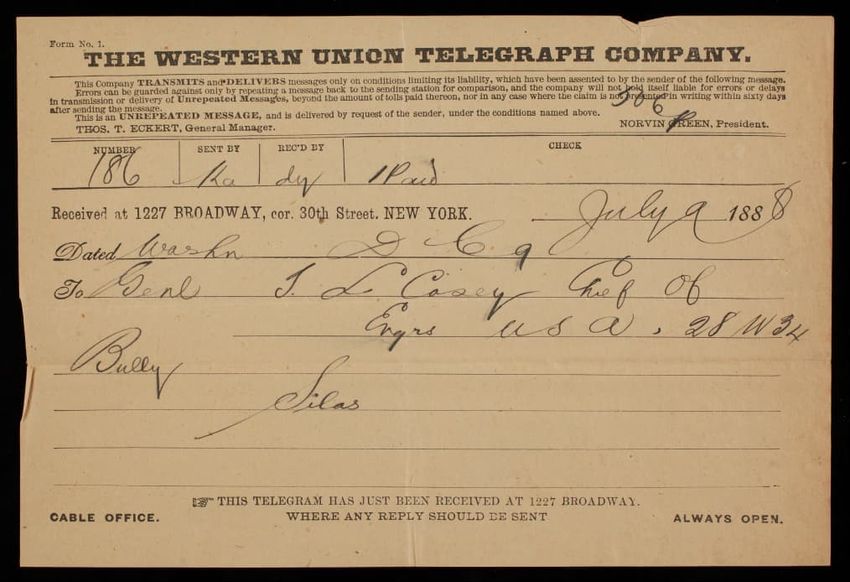 Form No. 1.
THE WESTERN UNION TELEGRAPH COMPANY.
This Company TRANSMITS and DELIVERS messages only on conditions limiting its liability, which have been assented to by the sender of the following message.
Errors can be guarded against only by repeating a message back to the sending station for comparison, and the company will not hold itself liable for errors or delays
in transmission or delivery of Unrepeated Messages, beyond the amount of tolls paid thereon, nor in any case where the claim is not presented in writing within sixty days
after sending the message.
This is an UNREPEATED MESSAGE, and is delivered by request of the sender, under the conditions named above.
506
THOS. T. ECKERT, General Manager. NORVIN GREEN, President.
NUMBER SENT BY REC'D BY CHECK
186 Ka dy 1 Paid
Received at 1227 BROADWAY, cor. 30th Street. NEW YORK. July 9 1888
Dated Washn D C 9
To Genl T. L Casey Chief Of
Engrs U S A. 28 W 34
Bully
Silas
THIS TELEGRAM HAS JUST BEEN RECEIVED AT 1227 BROADWAY.
CABLE OFFICE. WHERE ANY REPLY SHOULD BE SENT ALWAYS OPEN.